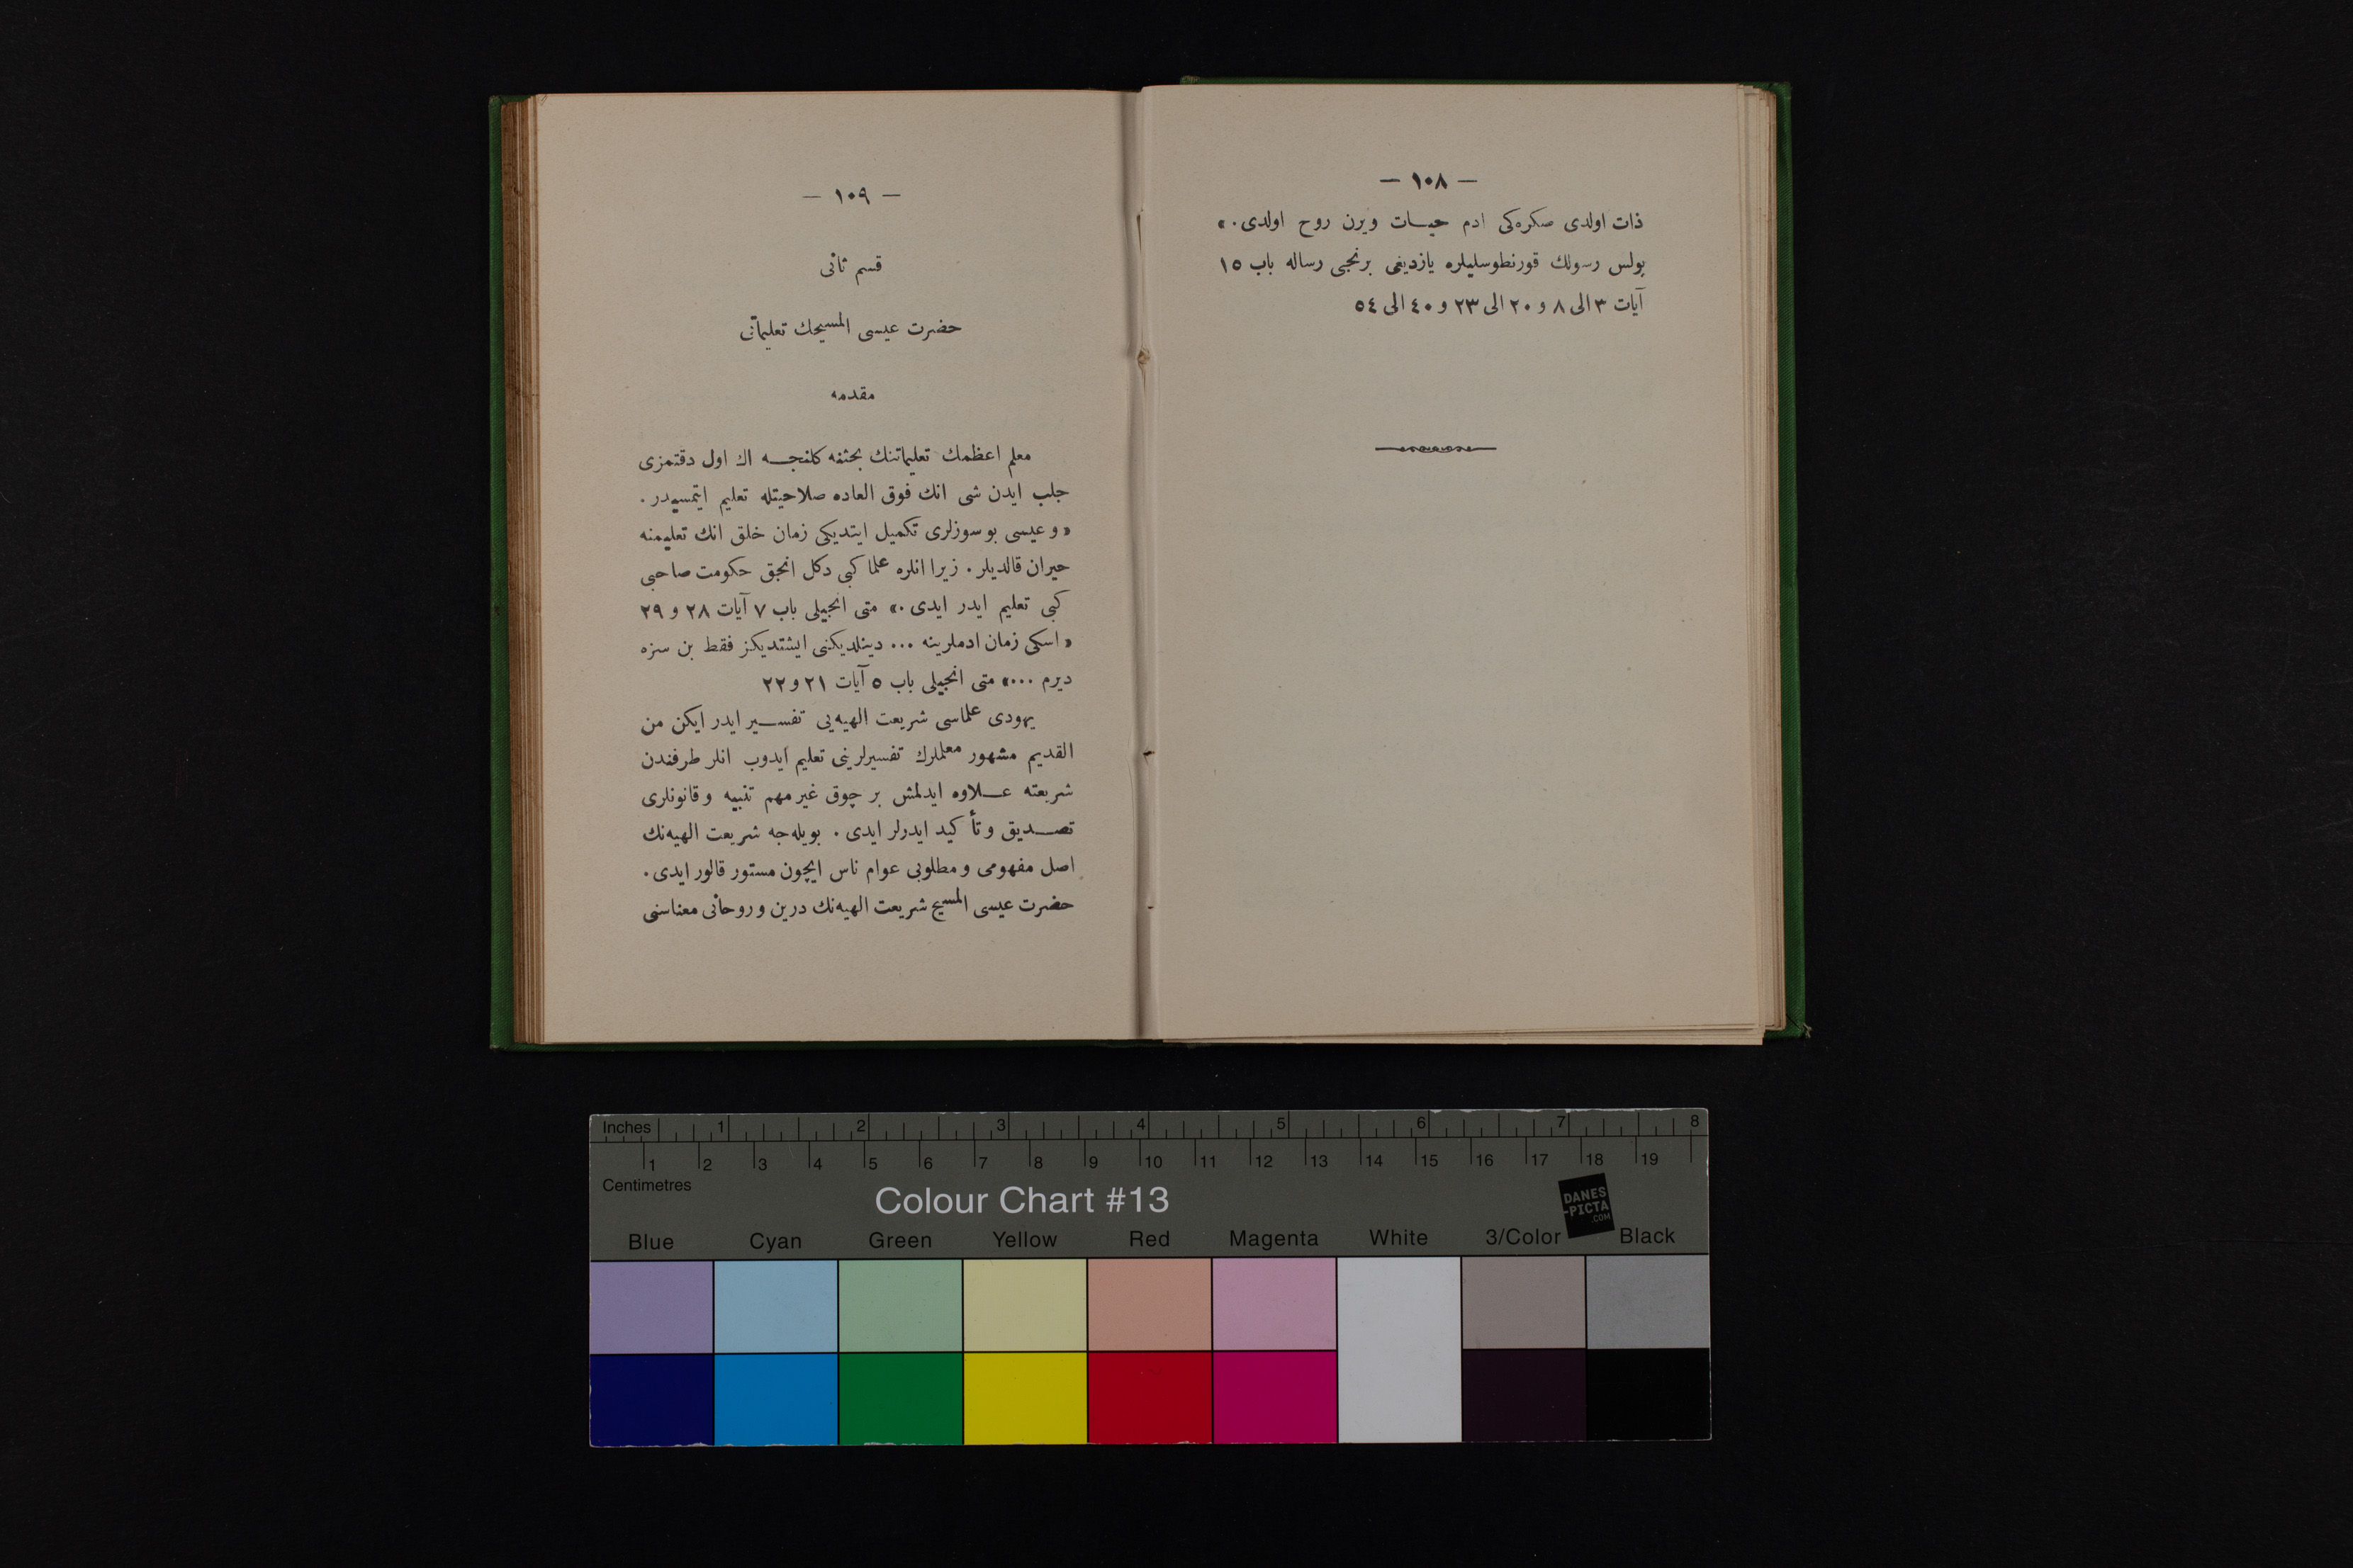 — ١٠٨ —
ذات اولدی صكره‌كی ادم حيات ويرن روح اولدی.»
پولس رسولك قورنطوسليلره يازديغی برنجی رساله باب ١٥
آيات ٣ الی ٨ و ٢٠ الی ٢٣ و ٤٠ الی ٥٤
— ١٠٩ —
قسم ثانی
حضرت عيسی المسيحك تعليماتی
مقدمه
معلم اعظمك تعليماتنك بحثنه كلنجه اك اول دقتمزی
جلب ايدن شی انك فوق العاده صلاحيتله تعليم ايتمسيدر.
«و عيسی بو سوزلری تكميل ايتديكی زمان خلق انك تعليمنه
حيران قالديلر. زيرا انلره علما كبی دكل انجق حكومت صاحبی
كبی تعليم ايدر ايدی.» متی انجيلی باب ٧ آيات ٢٨ و ٢٩
«اسكی زمان ادملرينه ... دينلديكنی ايشتديكز فقط بن سزه
ديرم ...» متی انجيلی باب ٥ آيات ٢١ و ٢٢
يهودی علماسی شريعت الهيه‌يی تفسير ايدر ايكن من
القديم مشهور معلملرك تفسيرلرينی تعليم ايدوب انلر طرفندن
شريعته علاوه ايدلمش بر چوق غير مهم تنبيه و قانونلری
تصديق و تأكيد ايدرلر ايدی. بويله‌جه شريعت الهيه‌نك
اصل مفهومی و مطلوبی عوام ناس ايچون مستور قالور ايدی.
حضرت عيسی المسيح شريعت الهيه‌نك درين و روحانی معناسنی
Inches 1 2 3 4 5 6 7 8
1 2 3 4 5 6 7 8 9 10 11 12 13 14 15 16 17 18 19
Centimetres
Colour Chart #13
DANES
-PICTA
.COM
Blue Cyan Green Yellow Red Magenta White 3/Color Black